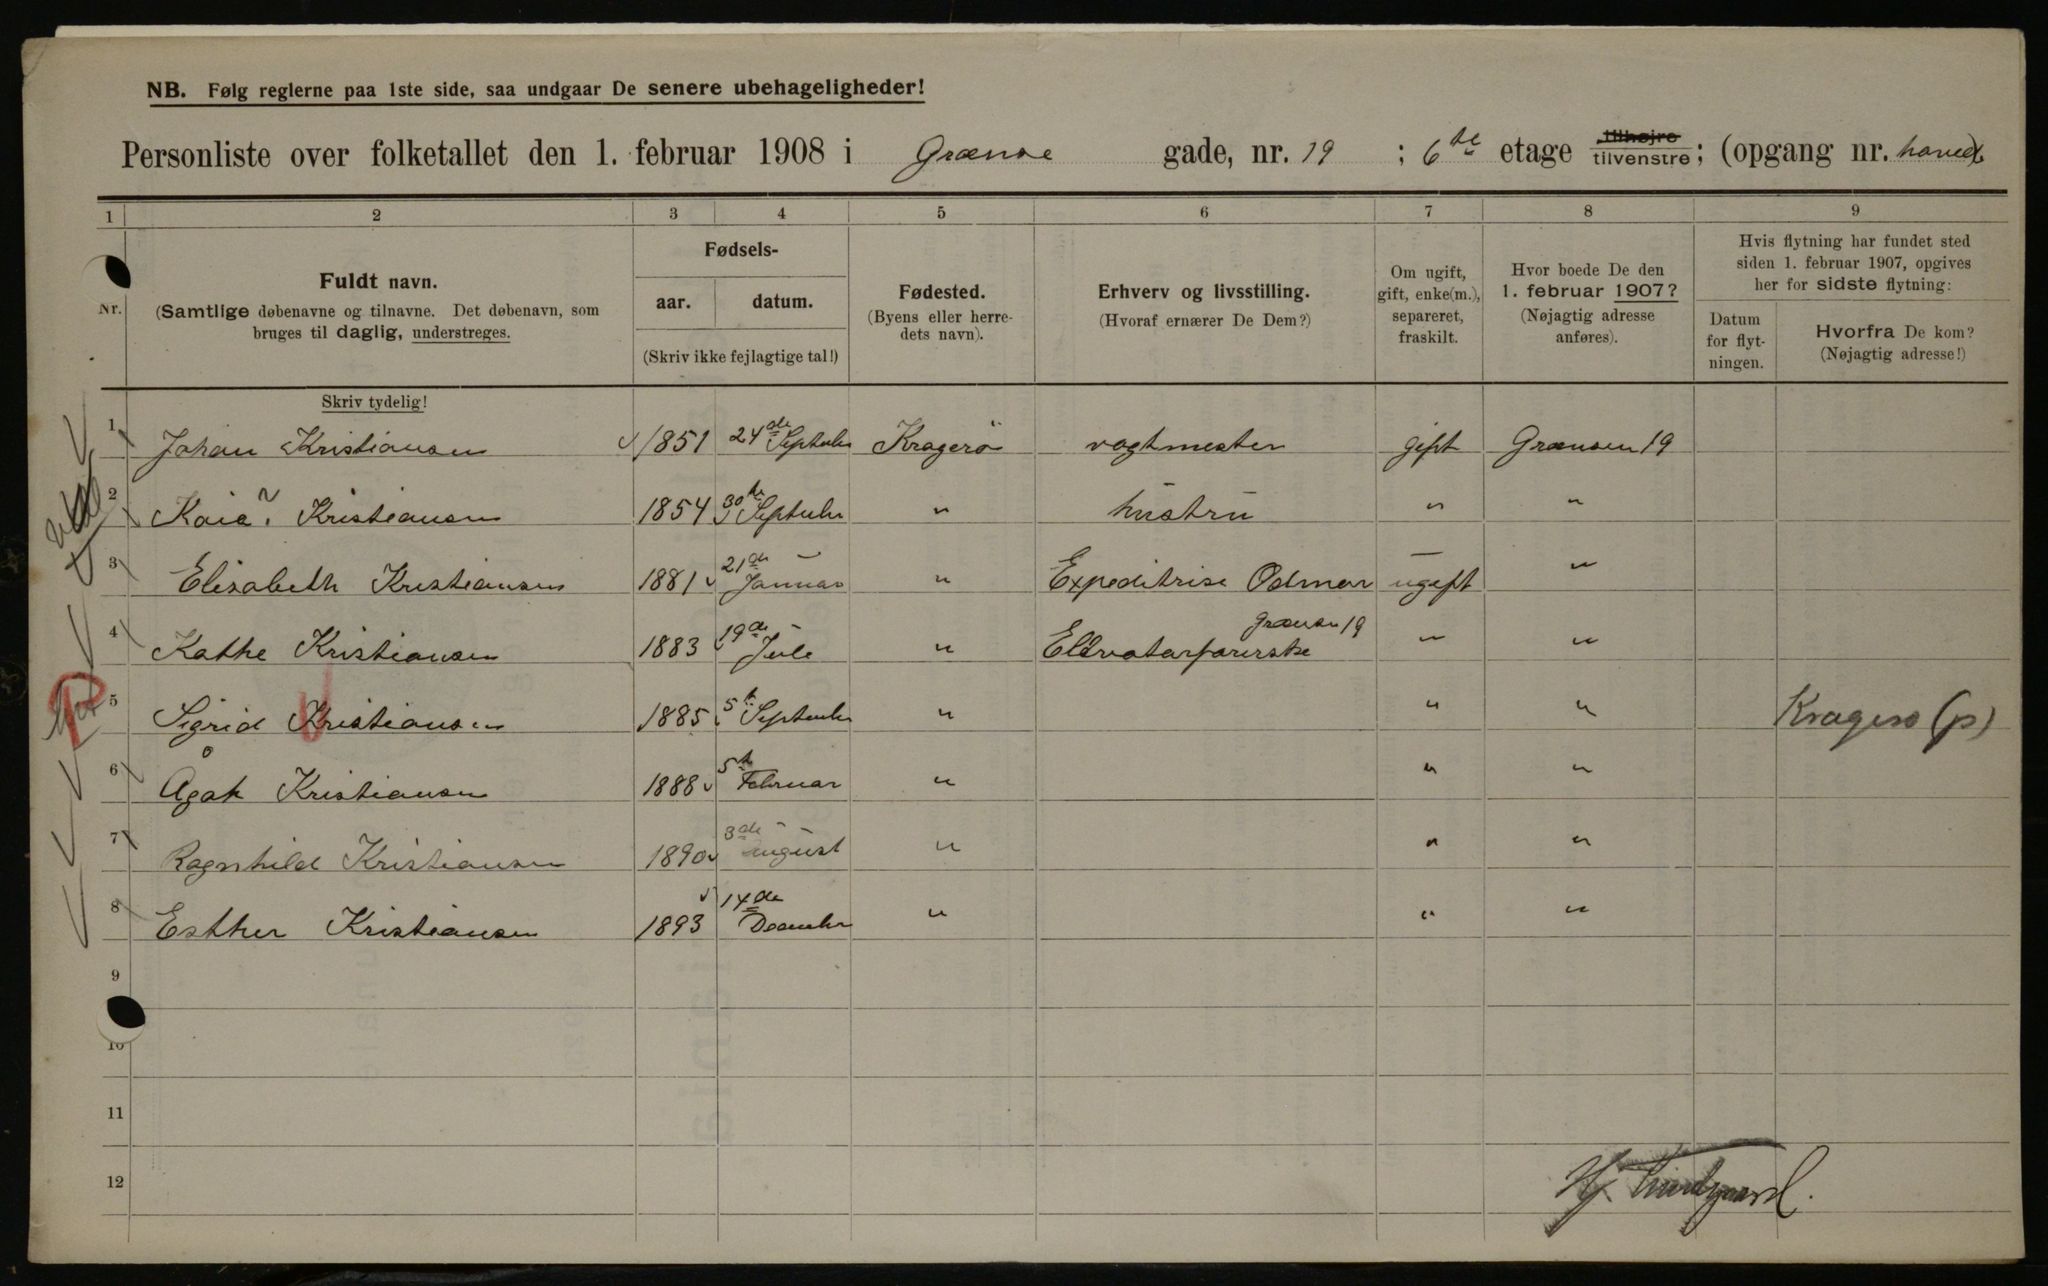 NB. Følg reglerne paa 1ste side, saa undgaar De senere ubehageligheder!
Personliste over folketallet den 1. februar 1908 i Grænse gade, nr. 19 ; 6te etage tilhøjre tilvenstre; (opgang nr.
1 2 3 4 5 6 7 8 9
Nr.
Fuldt navn.
(Samtlige døbenavne og tilnavne. Det døbenavn, som
bruges til daglig, understreges.
Fødsels-
aar. datum.
(Skriv ikke fejlagtige tal!)
Fødested.
(Byens eller herre-
dets navn).
Erhverv og livsstilling.
(Hvoraf ernærer De Dem?)
Om ugift,
gift, enke(m.),
separeret,
fraskilt.
Hvor boede De den
1. februar 1907?
(Nøjagtig adresse
anføres).
Hvis flytning har fundet sted
siden 1. februar 1907, opgives
her for sidste flytning:
Datum
for flyt-
ningen.
Hvorfra De kom?
(Nøjagtig adresse!)
Skriv tydelig!
1 Johan Kristiansen 1851 24de Septebr Kragerö vagtmester gift Grænsen 19
2 Kaia Kristiansen 1854 30te Septebr " hustru " "
3 Elisabeth Kristiansen 1881 21de Januar " Expeditrise Odmar ugift "
Grænsen 19
4 Kathe Kristiansen 1883 19de Jule " Ellevatorførerske " "
5 Sigrid Kristiansen 1885 5te Septembr " " " Kragerø (p)
6 Ågot Kristiansen 1888 5te Februar " " "
7 Ragnhild Kristiansen 1890 3de August " " "
8 Esther Kristiansen 1893 14de Decembr " " "
9
10
11
12